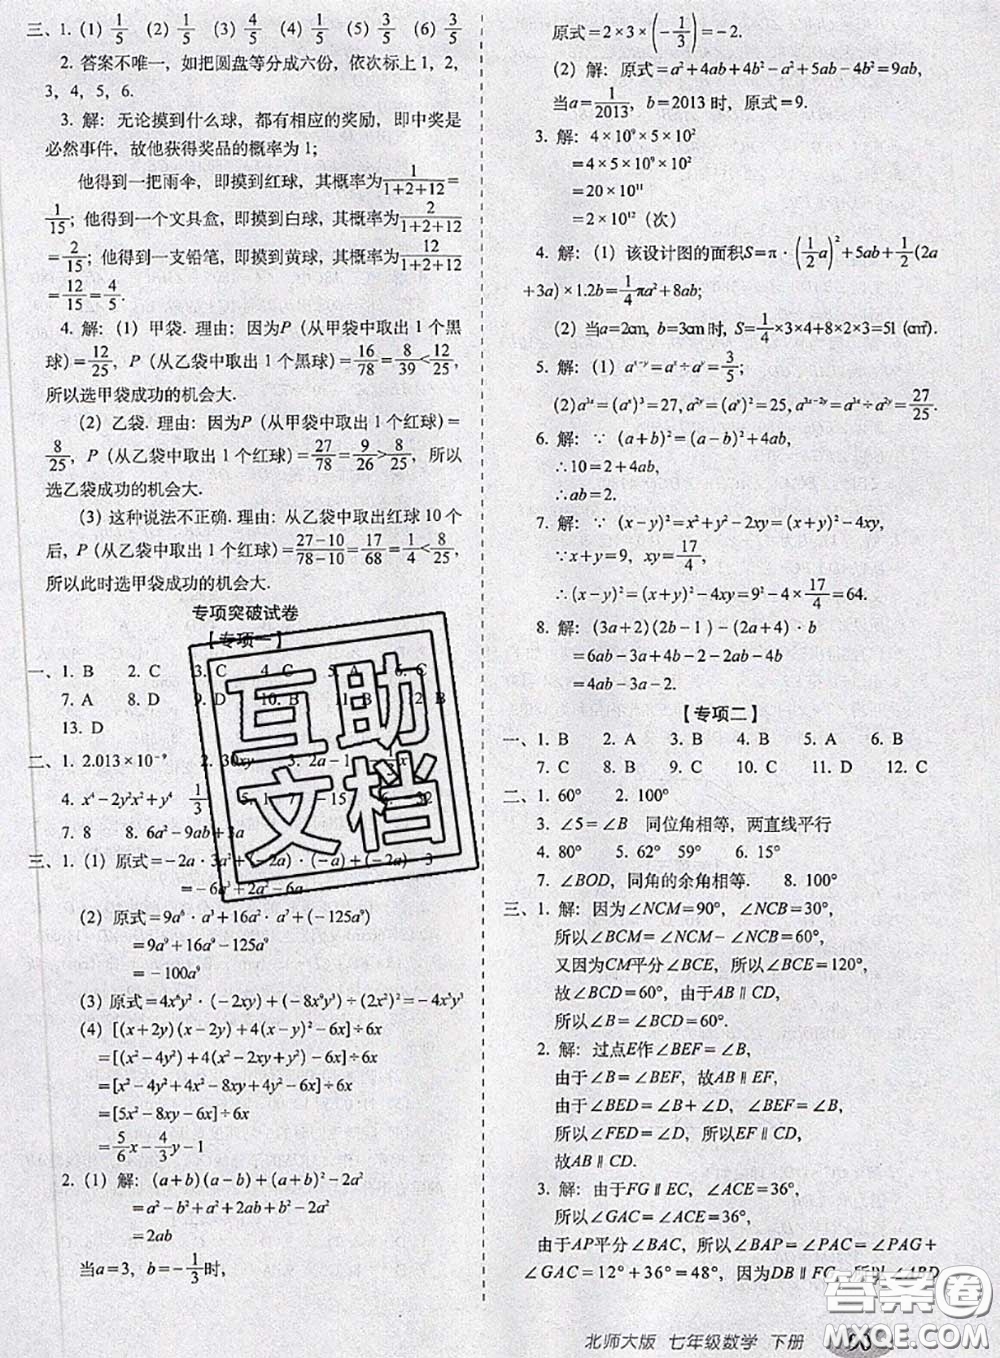 三、1. (1) 1/5 (2) 1/5 (3) 3/5 (4) 1/5 (5) 2/5 (6) 3/5
2. 答案不唯一，如把圆盘等分成六份，依次标上 1，2，
3，4，5，6.
3. 解：无论摸到什么球，都有相应的奖励，即中奖是
必然事件，故他获得奖品的概率为 1；
他得到一把雨伞，即摸到红球，其概率为 1/(1+2+12) =
1/15；他得到一个文具盒，即摸到白球，其概率为 2/(1+2+12)
= 2/15；他得到一支铅笔，即摸到黄球，其概率为 12/(1+2+12)
= 12/15 = 4/5.
4. 解：(1) 甲袋. 理由：因为P (从甲袋中取出 1 个黑
球) = 12/25，P (从乙袋中取出 1 个黑球) = 16/78 = 8/39 < 12/25，
所以选甲袋成功的机会大.
(2) 乙袋. 理由：因为P (从甲袋中取出 1 个红球) =
8/25，P (从乙袋中取出 1 个红球) = 27/78 = 9/26 > 8/25，所以
选乙袋成功的机会大.
(3) 这种说法不正确. 理由：从乙袋中取出红球 10 个
后，P (从乙袋中取出 1 个红球) = (27-10)/(78-10) = 17/68 = 1/4 < 8/25，
所以此时选甲袋成功的机会大.
专项突破试卷
【专项一】
一、1. B 2. C 3. C 4. C 5. A 6. C
7. A 8. D 9. D 10. B 11. B 12. B
13. D
二、1. 2.013×10⁻⁹ 2. 30xy 3. 2a-1
4. x⁴-2y²x²+y⁴ 1/3 5. 1 6.
7. 8 8. 6a²-9ab+3a
三、1. (1) 原式=-2a·3a²+(-2a)·(-a)+(-2a)·3
=-6a³+2a²-6a
(2) 原式=9a⁶·a³+16a²·a⁷+(-125a⁹)
=9a⁹+16a⁹-125a⁹
=-100a⁹
(3) 原式=4x⁶y²·(-2xy)+(-8x⁹y³)÷(2x²)=-4x⁵y³
(4) [(x+2y)(x-2y)+4(x-y)²-6x]÷6x
=[(x²-4y²)+4(x²-2xy+y²)-6x]÷6x
=[x²-4y²+4x²-8xy+4y²-6x]÷6x
=[5x²-8xy-6x]÷6x
=5/6x-4/3y-1
2. (1) 解：(a+b)(a-b)+(a+b)²-2a²
=a²-b²+a²+2ab+b²-2a²
=2ab
当a=3，b=-1/3时，
原式=2×3×(-1/3)=-2.
(2) 解：原式=a²+4ab+4b²-a²+5ab-4b²=9ab，
当a=1/2013，b=2013 时，原式=9.
3. 解：4×10⁹×5×10²
=4×5×10⁹×10²
=20×10¹¹
=2×10¹²（次）
4. 解：(1) 该设计图的面积S=π·(1/2a)²+5ab+1/2(2a
+3a)×1.2b=1/4πa²+8ab；
(2) 当a=2cm，b=3cm时，S=1/4×3×4+8×2×3=51 (cm²).
5. 解：(1) aˣ⁻ʸ=aˣ÷aʸ=3/5；
(2)a³ˣ=(aˣ)³=27，a²ʸ=(aʸ)²=25，a³ˣ⁻²ʸ=a³ˣ÷a²ʸ=27/25.
6. 解：∵ (a+b)²=(a-b)²+4ab，
∴10=2+4ab，
∴ab=2.
7. 解：∵ (x-y)²=x²+y²-2xy=(x+y)²-4xy，
∵x+y=9，xy=17/4，
∴(x-y)²=(x+y)²-4xy=9²-4×17/4=64.
8. 解：(3a+2)(2b-1)-(2a+4)·b
=6ab-3a+4b-2-2ab-4b
=4ab-3a-2.
【专项二】
一、1. B 2. A 3. B 4. B 5. A 6. B
7. C 8. D 9. B 10. C 11. D 12. C
二、1. 60° 2. 100°
3. ∠5=∠B 同位角相等，两直线平行
4. 80° 5. 62° 59° 6. 15°
7. ∠BOD，同角的余角相等. 8. 100°
三、1. 解：因为∠NCM=90°，∠NCB=30°，
所以∠BCM=∠NCM-∠NCB=60°，
又因为CM平分∠BCE，所以∠BCE=120°，
故∠BCD=60°，由于AB∥CD，
所以∠B=∠BCD=60°.
2. 解：过点E作∠BEF=∠B，
由于∠BEF=∠B，故AB∥EF，
由于∠BED=∠B+∠D，∠BED=∠BEF+∠FED，
所以∠FED=∠D，所以EF∥CD，
故AB∥CD.
3. 解：由于FG∥EC，∠ACE=36°，
所以∠GAC=∠ACE=36°，
由于AP平分∠BAC，所以∠BAP=∠PAC=∠PAG+
∠GAC=12°+36°=48°，因为DB∥FG，所以∠ABD
北师大版 七年级数学 下册
互助
文档
答案圈